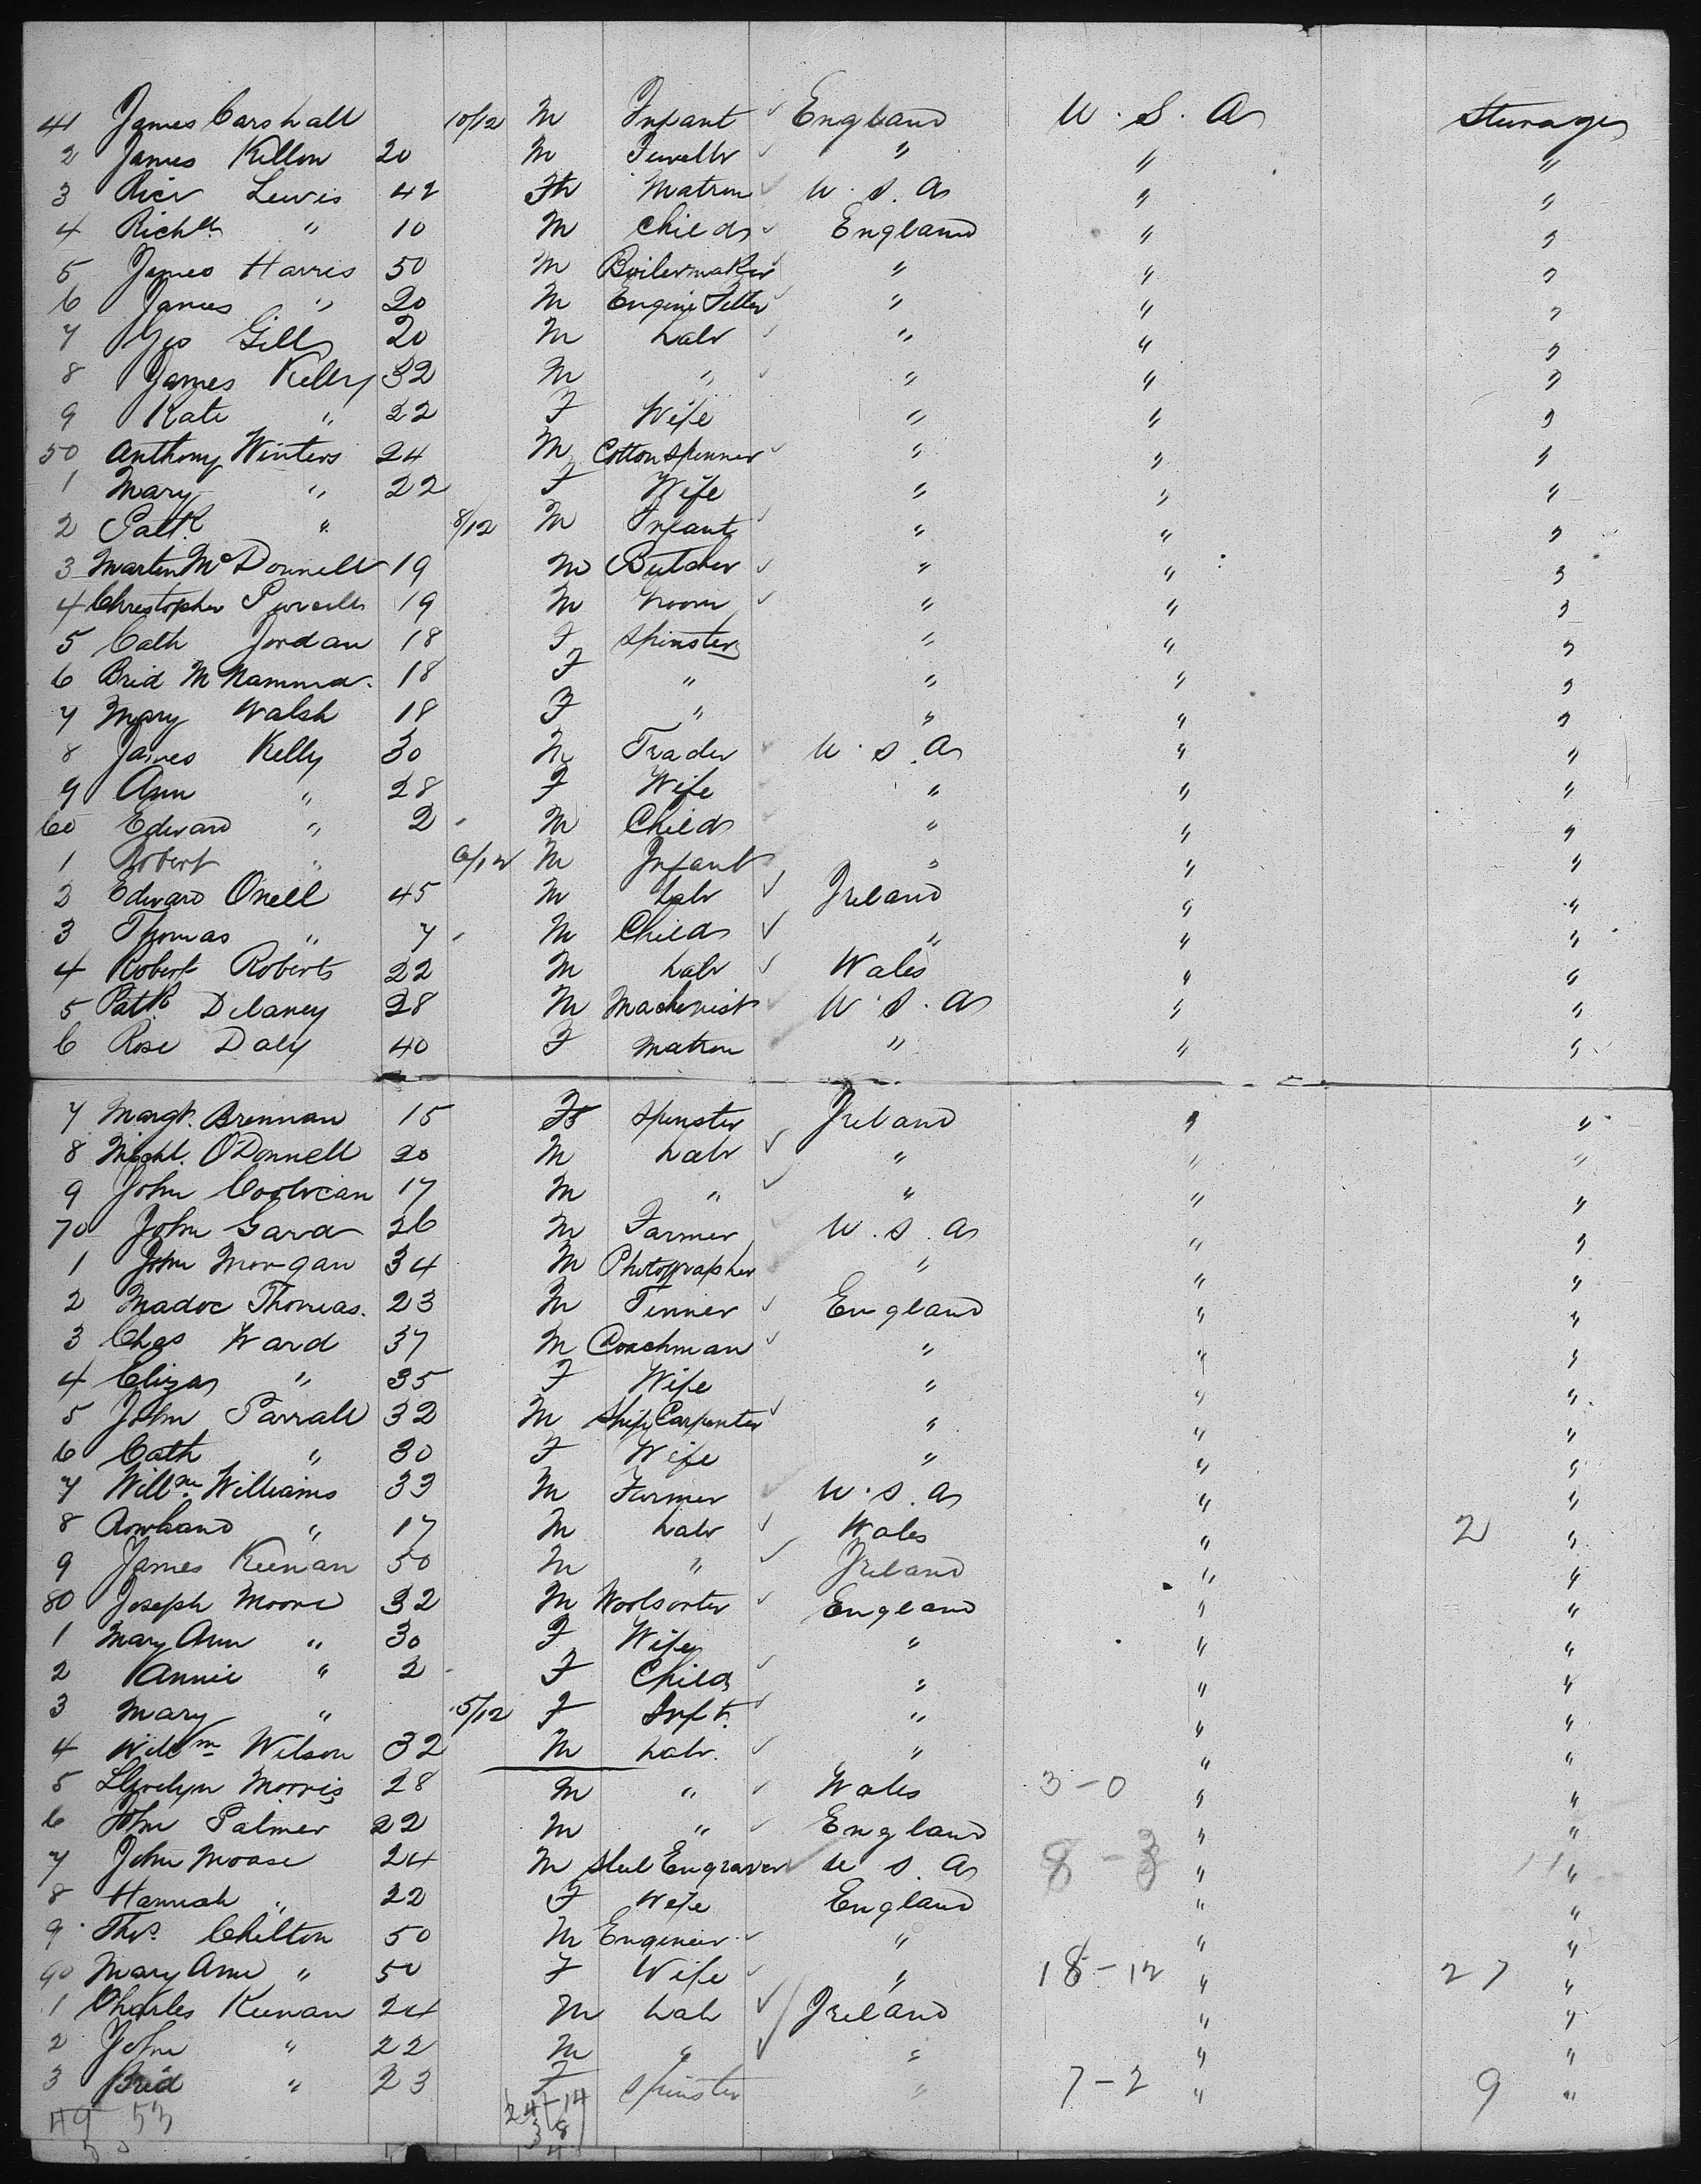 41 James Carshall 10/12 M Infant ✓ England U.S.A Steerage
2 James Killon 20 M Jeweller ✓ " " "
3 Lewis 42 F Matron ✓ U.S.A " "
4 Richd " 10 M Child ✓ England " "
5 James Harris 50 M Boilermaker ✓ " " "
6 James " 20 M Engine Fitter ✓ " " "
7 Geo Gill 20 M Labr ✓ " " "
8 James Kelly 32 M " ✓ " " "
9 Kate " 22 F Wife " " "
50 Anthony Winters 24 M Cotton Spinner ✓ " " "
1 Mary " 22 F Wife " " "
2 Patk " 8/12 M Infant ✓ " " "
3 Martin McDonnell 19 M Butcher ✓ " " "
4 Christopher Purcell 19 M Groom ✓ " " "
5 Cath Jordan 18 F Spinster " " "
6 Brid McNamma. 18 F " " " "
7 Mary Walsh 18 F " " " "
8 James Kelly 30 M Trader ✓ U.S.A " "
9 Ann " 28 F Wife " " "
60 Edward " 2 - M Child " " "
1 Robert " 6/12 M Infant " " "
2 Edward Onell 45 M Labr ✓ Ireland " "
3 Thomas " 7 - M Child ✓ " " "
4 Robert Roberts 22 M Labr ✓ Wales " "
5 Patk Delaney 28 M Machinist ✓ U.S.A " "
6 Rose Daly 40 F Matron " " "
7 Margt. Brennan 15 F Spinster Ireland " "
8 Michl. O'Donnell 20 M Labr ✓ " " "
9 John 17 M " ✓ " " "
70 John Gava 26 M Farmer ✓ U.S.A " "
1 John Morgan 34 M Photographer " " "
2 Madoc Thomas. 23 M Tinner ✓ England " "
3 Chas Ward 37 M Coachman ✓ " " "
4 Eliza " 35 F Wife " " "
5 John Parrall 32 M Ship Carpenter ✓ " " "
6 Cath " 30 F Wife " " "
7 Willm Williams 33 M Farmer ✓ U.S.A " "
8 Rowland " 17 M Labr ✓ Wales " 2 "
9 James Keenan 50 M " ✓ Ireland " "
80 Joseph Moore 32 M Woolsorter ✓ England " "
1 Mary Ann " 30 F Wife " " "
2 Annie " 2 - F Child ✓ " " "
3 Mary " 5/12 F Inft. ✓ " " "
4 Willm Wilson 32 M Labr. ✓ " " "
5 Llewelyn Morris 28 M " ✓ Wales 3-0 " "
6 John Palmer 22 M " ✓ England " "
7 John Moase 24 M Steel Engraver ✓ U.S.A 8-3 " "
8 Hannah " 22 F Wife England " "
9 Thos. Chilton 50 M Engineer ✓ " " "
90 Mary Ann " 50 F Wife ✓ " 18-12 " 27 "
1 Charles Keenan 24 M Labr ✓ Ireland " "
2 John " 22 M " ✓ " " "
3 Brid " 23 F Spinster " 7-2 " 9 "
49 53 24-14
3 8